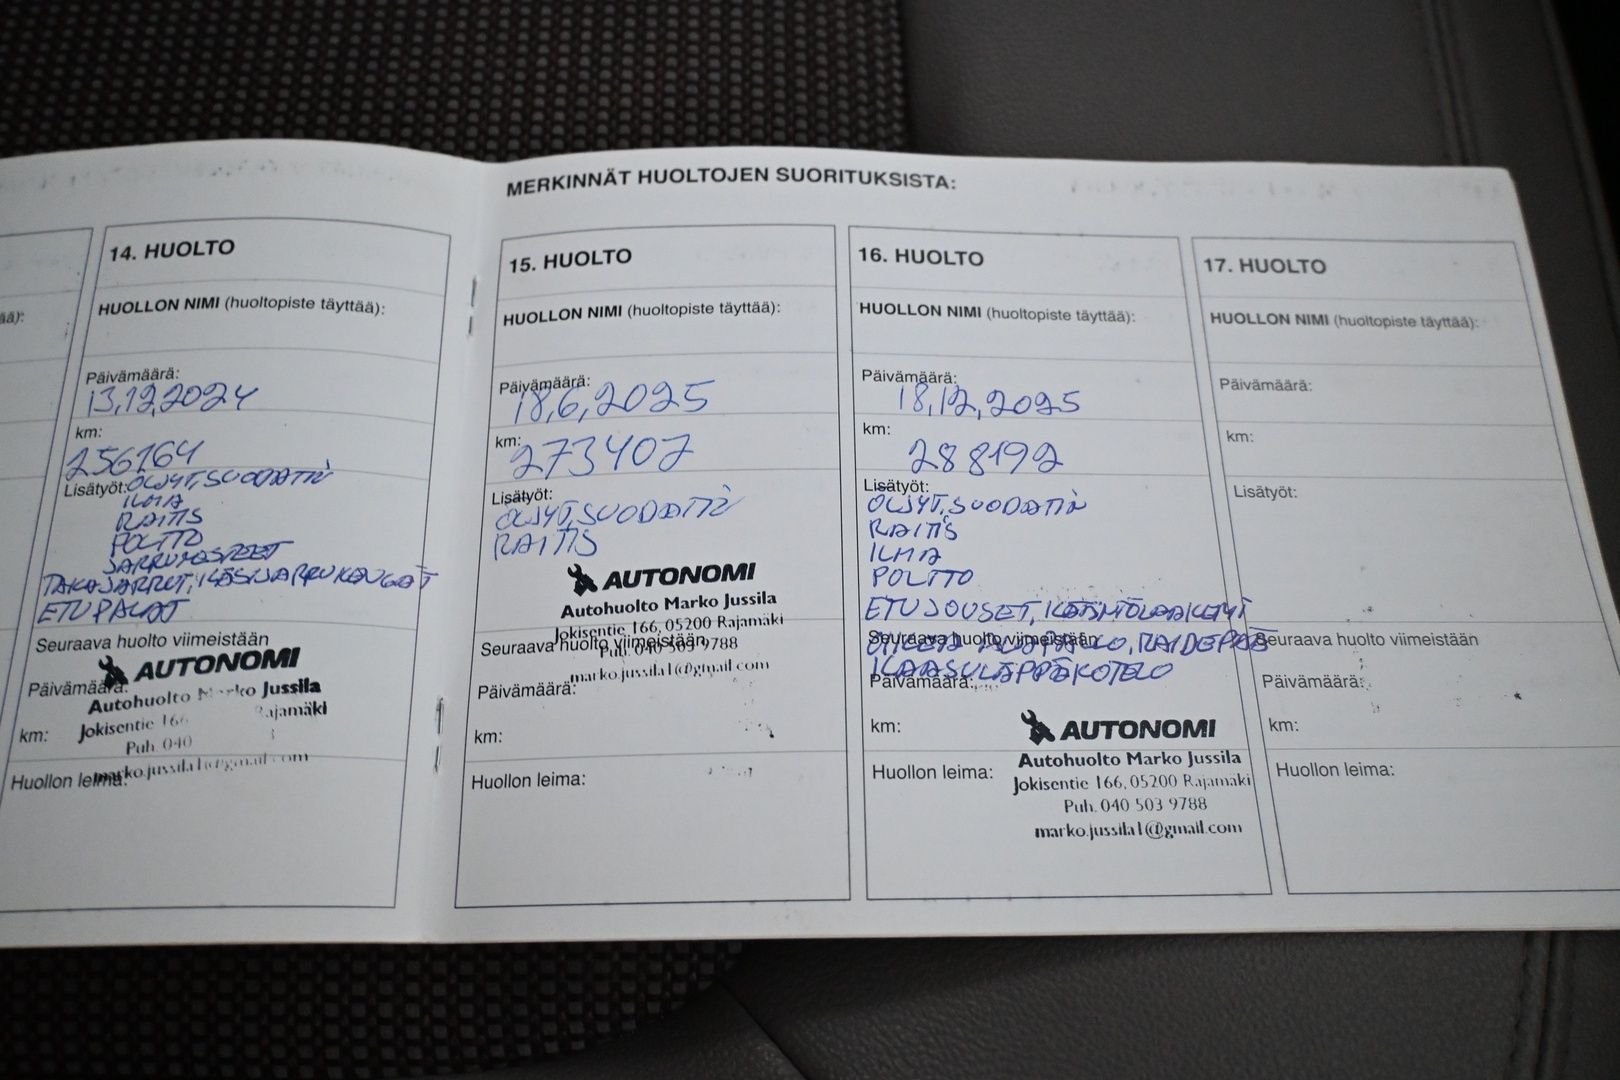 MERKINNÄT HUOLTOJEN SUORITUKSISTA:
ää):
14. HUOLTO
HUOLLON NIMI (huoltopiste täyttää):
Päivämäärä:
13,12,2024
km:
256164
Lisätyöt: ÖLJYT, SUODATIN
ILMA
RAITIS
POLTTO
JARRUNESTEET
TAKAJARRUT, KÄSIJARRUKENGÄT
ETUPALAT
Seuraava huolto viimeistään
AUTONOMI
Päivämäärä:
Autohuolto Marko Jussila
Jokisentie 166 Rajamäki
km:
Puh. 040
marko.jussila1@gmail.com
Huollon leima:
15. HUOLTO
HUOLLON NIMI (huoltopiste täyttää):
Päivämäärä:
18,6,2025
km:
273407
Lisätyöt:
ÖLJYT, SUODATIN
RAITIS
AUTONOMI
Autohuolto Marko Jussila
Jokisentie 166, 05200 Rajamäki
Seuraava huolto viimeistään
Puh. 040 503 9788
marko.jussila1@gmail.com
Päivämäärä:
km:
Huollon leima:
16. HUOLTO
HUOLLON NIMI (huoltopiste täyttää):
Päivämäärä:
18,12,2025
km:
288192
Lisätyöt:
ÖLJYT, SUODATIN
RAITIS
ILMA
POLTTO
ETUJOUSET, KÄÄNTÖLAAKERIT
Seuraava huolto viimeistään
RAIDEPÄÄ
KAASULÄPPÄKOTELO
Päivämäärä:
km:
AUTONOMI
Autohuolto Marko Jussila
Huollon leima:
Jokisentie 166, 05200 Rajamäki
Puh. 040 503 9788
marko.jussila1@gmail.com
17. HUOLTO
HUOLLON NIMI (huoltopiste täyttää):
Päivämäärä:
km:
Lisätyöt:
Seuraava huolto viimeistään
Päivämäärä:
km:
Huollon leima: